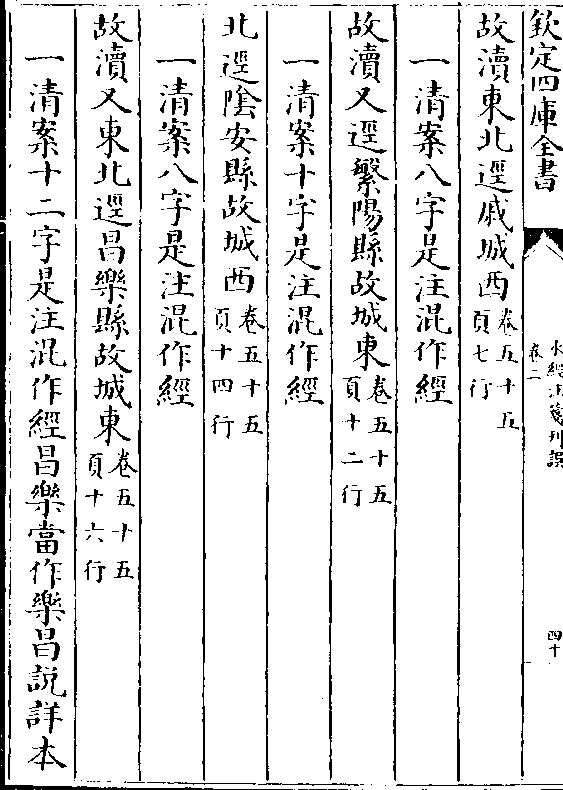 欽定四庫全書
水經注箋刊誤
卷二
四十
故瀆東北逕戚城西卷五十五頁七行
一清案八字是注混作經
故瀆又逕繁陽縣故城東卷五十五頁十二行
一清案十字是注混作經
北逕陰安縣故城西卷五十五頁十四行
一清案八字是注混作經
故瀆又東北逕昌樂縣故城東卷五十五頁十六行
一清案十二字是注混作經昌樂當作樂昌説詳本